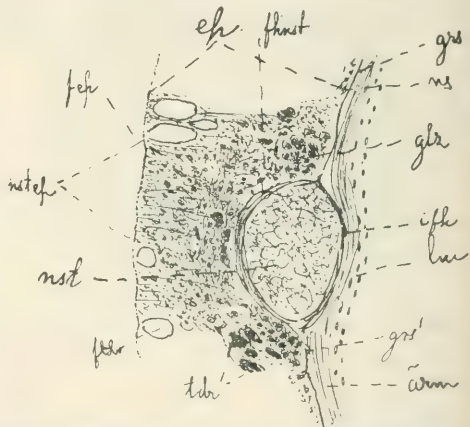 ep
fhnst
grs
ns
fep
glz
nstep
ifk
lm
nst
grs'
tdr'
ärm